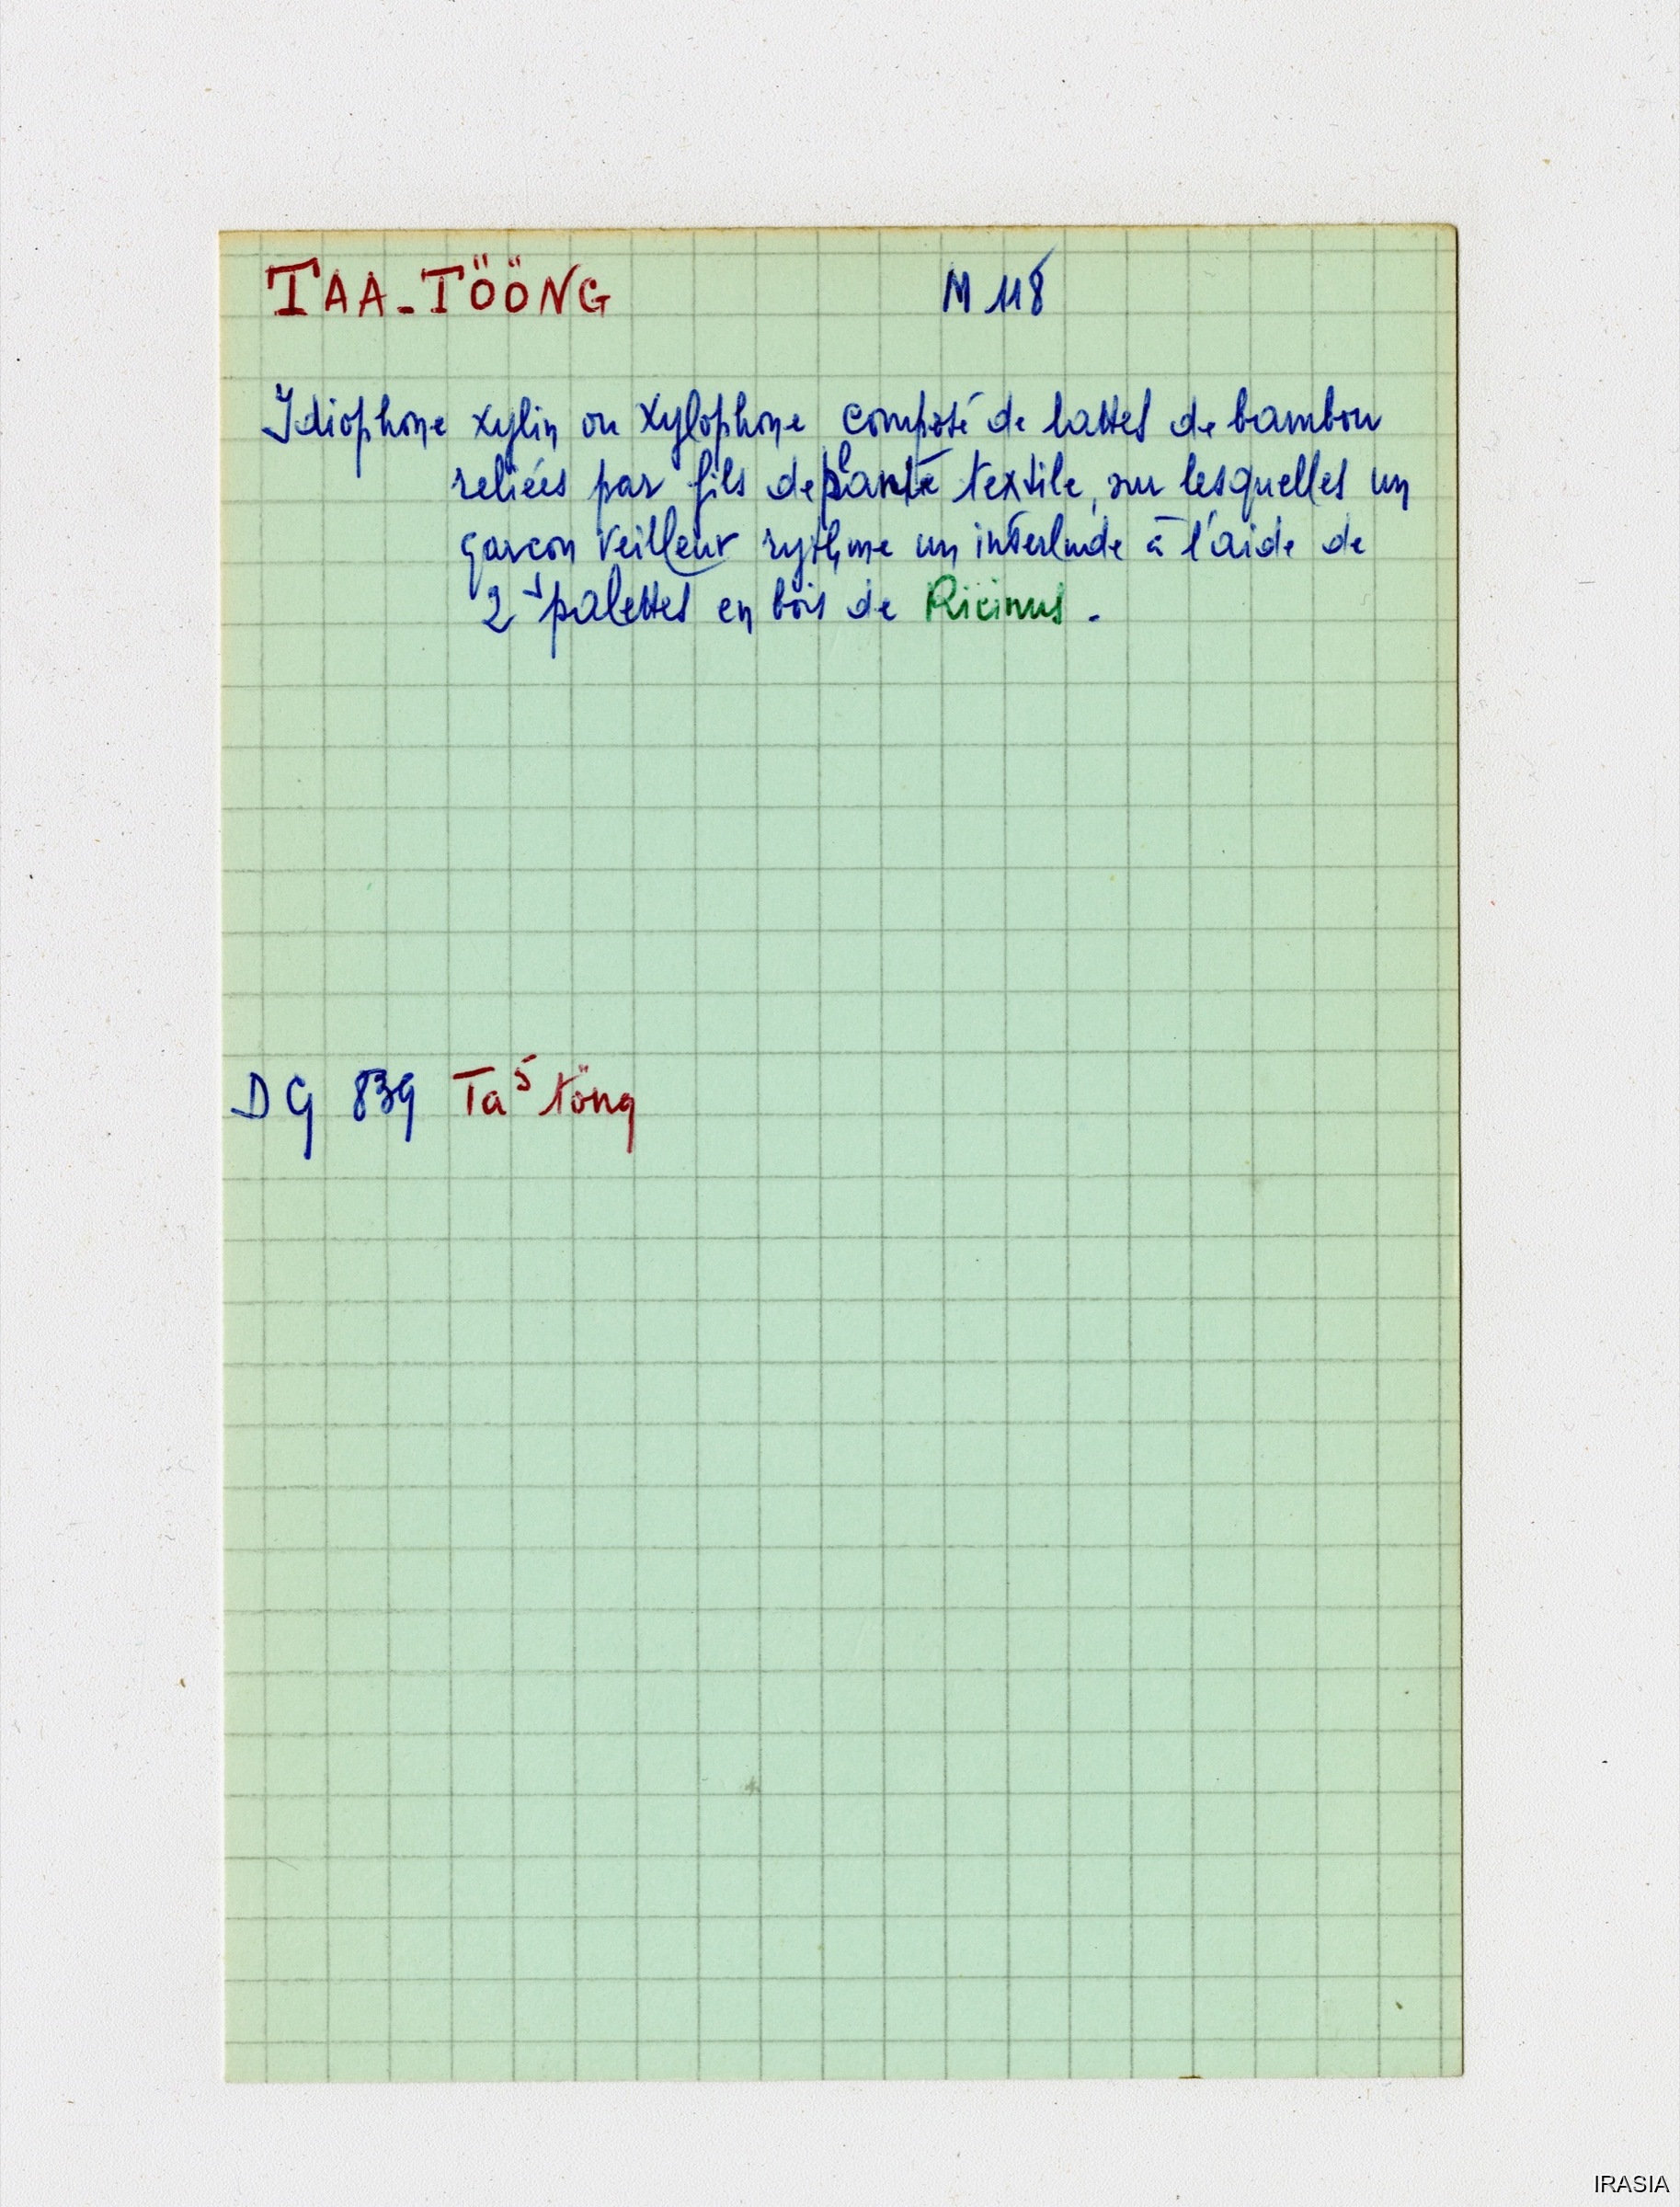 TAA-TÖÖNG M 118
Idiophone xylin ou xylophone composé de lattes de bambou
reliées par fils de plante textile, sur lesquelles un
garçon veilleur rythme un interlude à l'aide de
2 palettes en bois de Ricinus.
DG 839 Ta⁵ töng
IRASIA